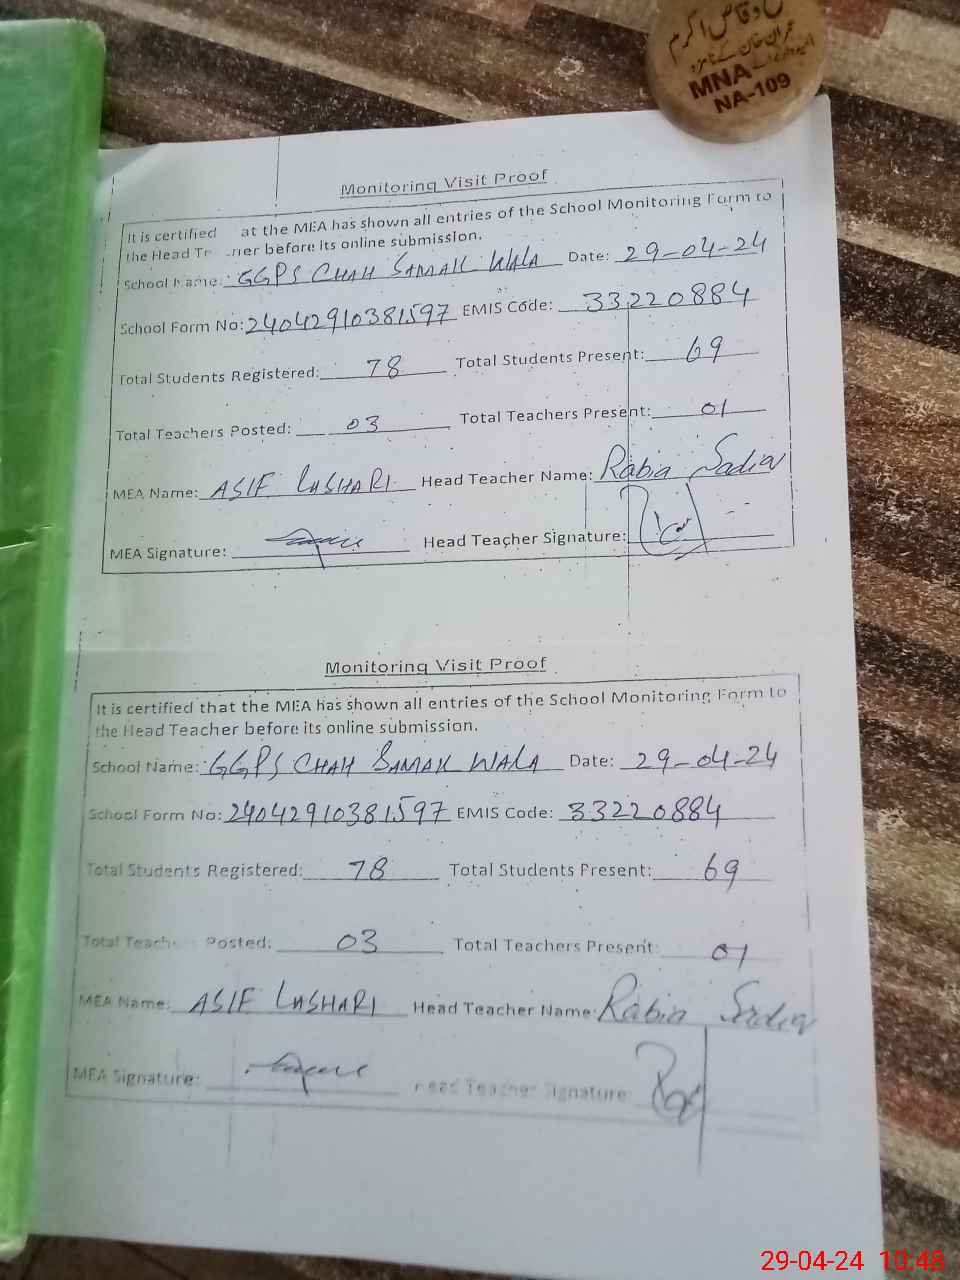 وقاص اکرم
عمران خان کے نامزد
امیدوار برائے
MNA
NA-109
Monitoring Visit Proof
It is certified at the MEA has shown all entries of the School Monitoring Form to
the Head Te her before its online submission.
School Name: GGPS CHAH SAMAK WALA Date: 29-04-24
School Form No: 24042910381597 EMIS Code: 33220884
Total Students Registered: 78 Total Students Present: 69
Total Teachers Posted: 03 Total Teachers Present: 01
MEA Name: ASIF LASHARI Head Teacher Name: Rabia
MEA Signature: Head Teacher Signature:
Monitoring Visit Proof
It is certified that the MEA has shown all entries of the School Monitoring Form to
the Head Teacher before its online submission.
School Name: GGPS CHAH SAMAK WALA Date: 29-04-24
School Form No: 24042910381597 EMIS Code: 33220884
Total Students Registered: 78 Total Students Present: 69
Total Teachers Posted: 03 Total Teachers Present: 01
MEA Name: ASIF LASHARI Head Teacher Name: Rabia
MEA Signature: Head Teacher Signature:
29-04-24 10:48